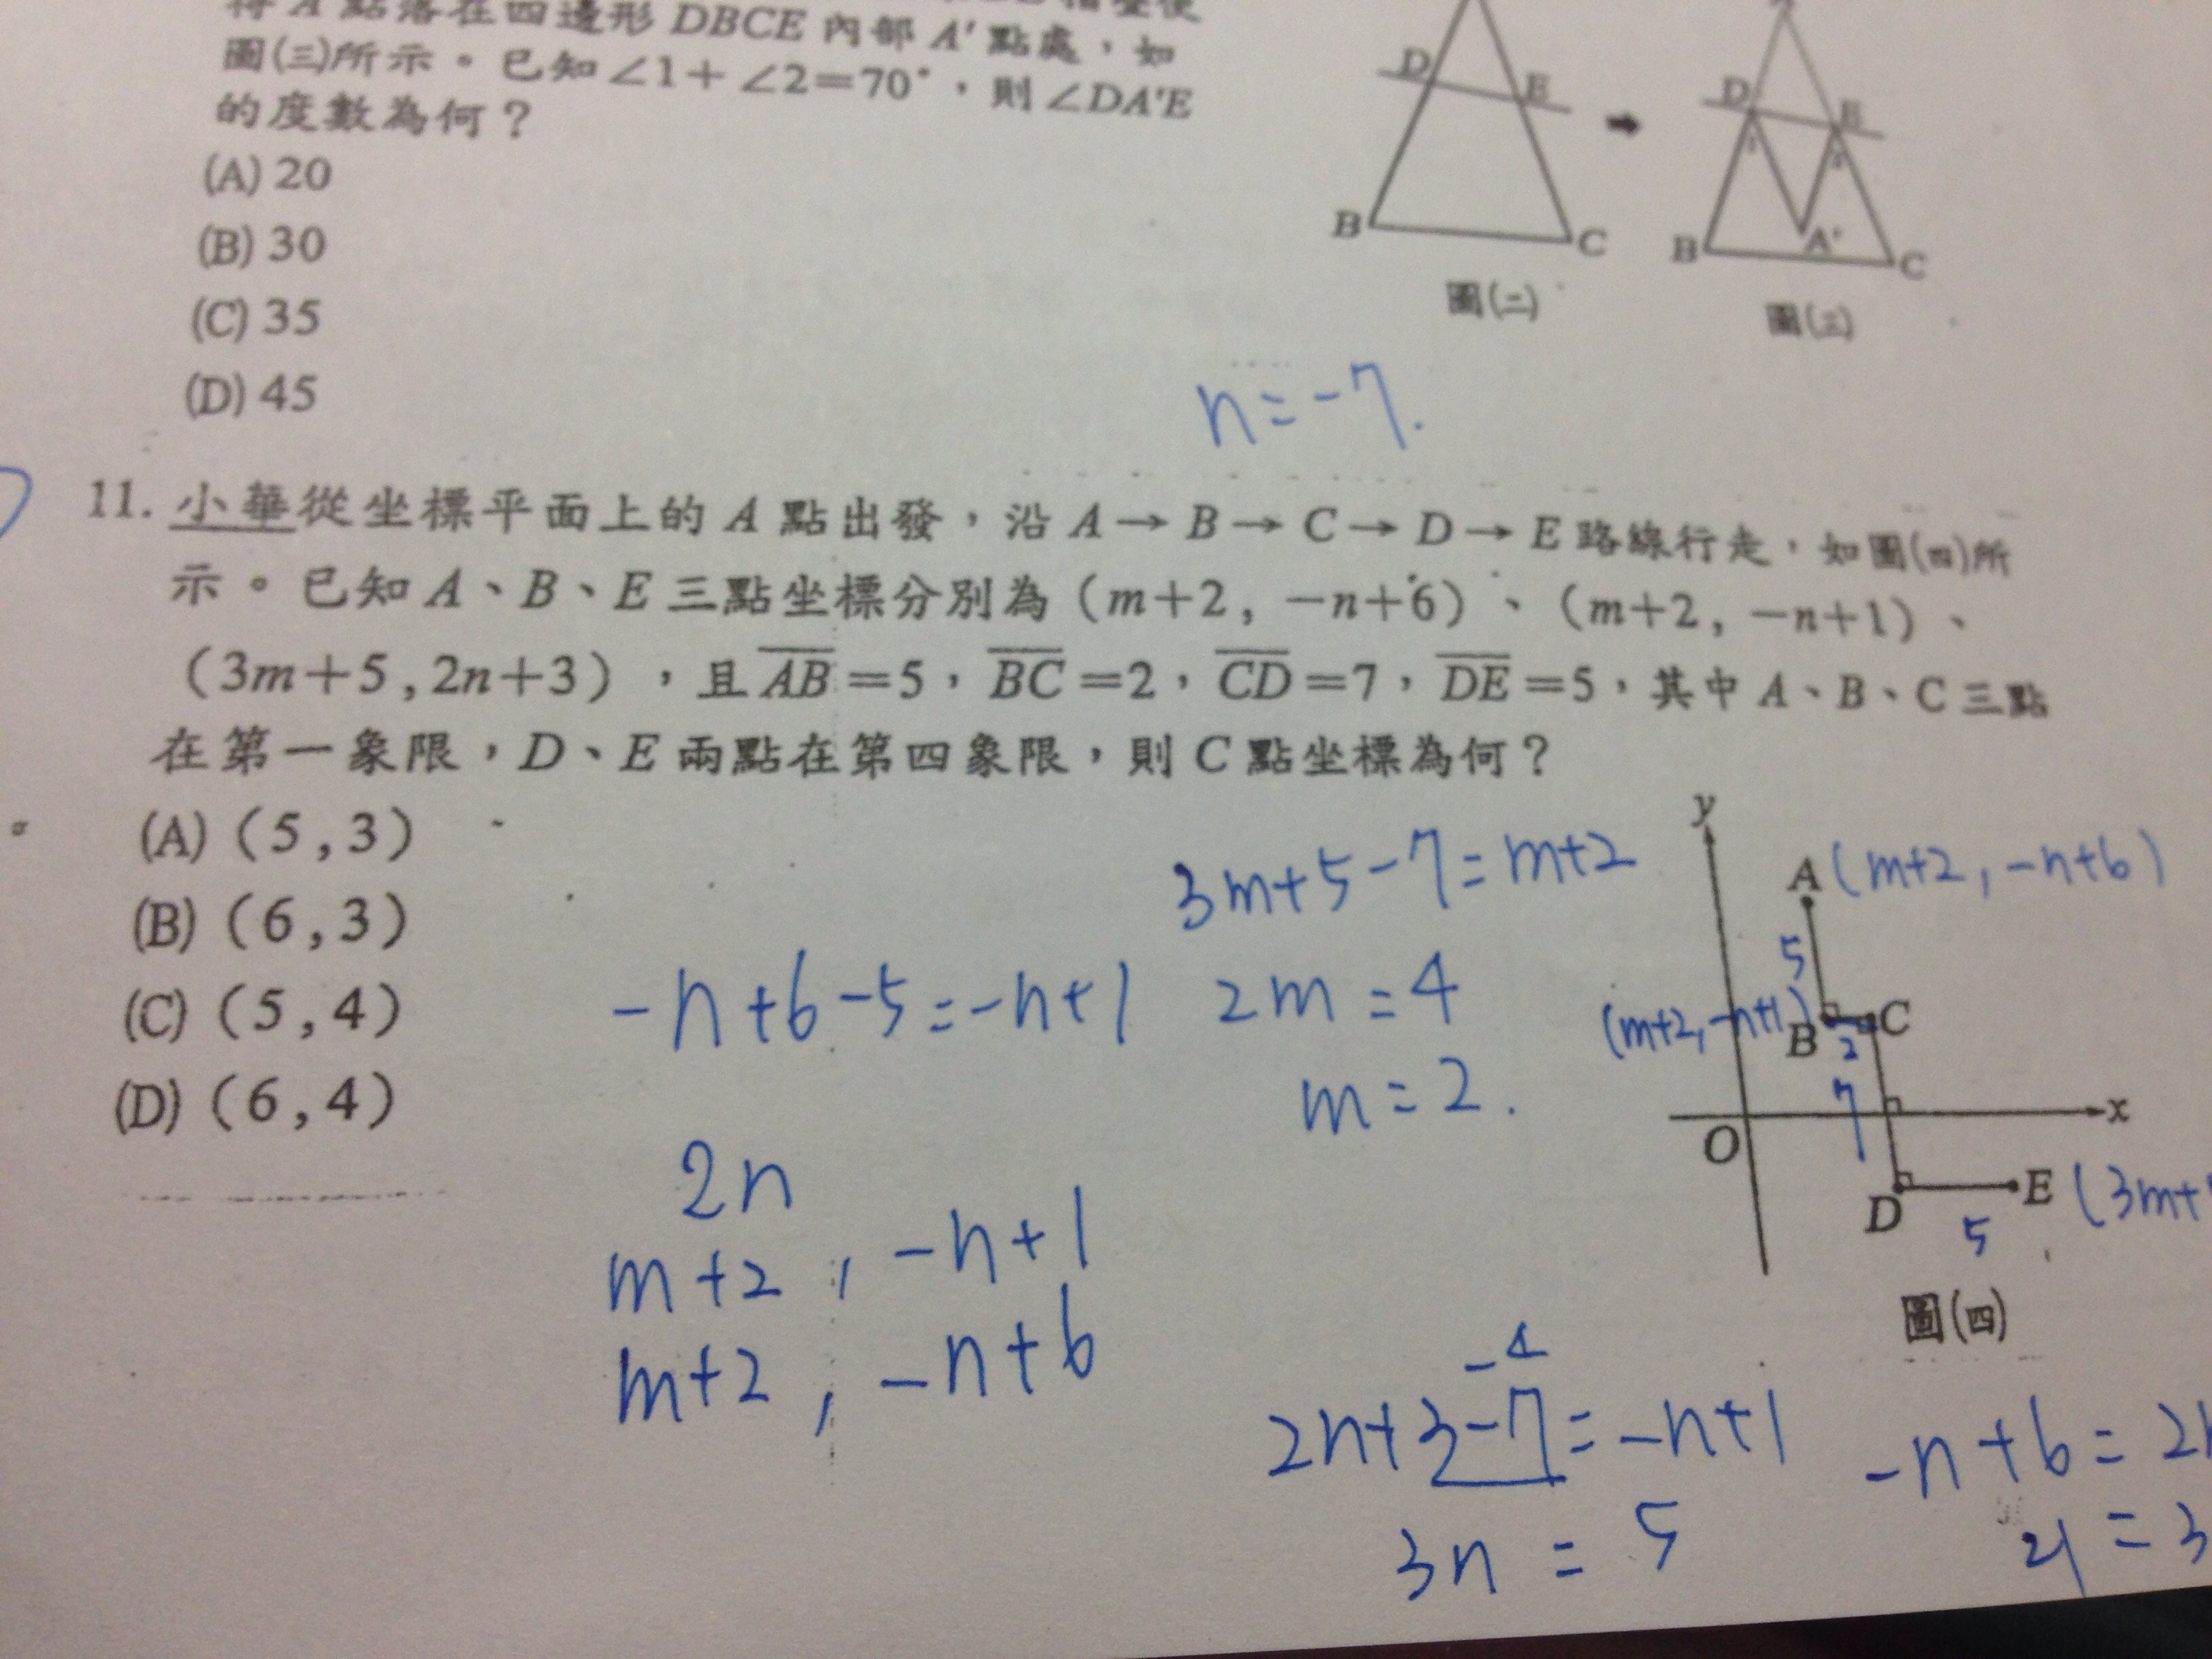 得 A 點落在四邊形 DBCE 內部 A' 點處，如
圖(三)所示。已知∠1+∠2=70°，則∠DA'E
的度數為何？
(A) 20
(B) 30
(C) 35
(D) 45
D
E
B
C
圖(二)
D
E
1
2
B
A'
C
圖(三)
n=-7.
11. 小華從坐標平面上的 A 點出發，沿 A→B→C→D→E 路線行走，如圖(四)所
示。已知 A、B、E 三點坐標分別為（m+2, －n+6）、（m+2, －n+1）、
（3m+5, 2n+3），且 AB=5，BC=2，CD=7，DE=5，其中 A、B、C 三點
在第一象限，D、E 兩點在第四象限，則 C 點坐標為何？
(A)（5,3）
(B)（6,3）
(C)（5,4）
(D)（6,4）
3m+5-7=m+2
2m=4
m=2.
-n+6-5=-n+1
2n
m+2, -n+1
m+2, -n+6
y
A (m+2, -n+6)
5
(m+2, -n+1)
B
2
C
7
O
x
D
E (3m+
5
圖(四)
-4
2n+3-7=-n+1
3n=5
-n+6=2
21=3